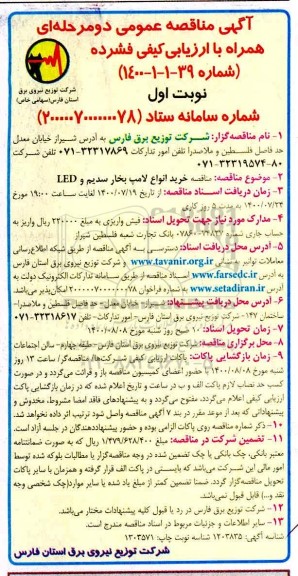 آگهی مناقصه عمومی دومرحله‌ای
همراه با ارزیابی کیفی فشرده
(شماره ۳۹-۱-۱-۱۴۰۰)
نوبت اول
شرکت توزیع نیروی برق
استان فارس(سهامی خاص)
شماره سامانه ستاد (۲۰۰۰۰۷۰۰۰۰۰۰۷۸)
۱- نام مناقصه‌گزار: شرکت توزیع برق فارس به آدرس شیراز خیابان معدل
حد فاصل فلسطین و ملاصدرا تلفن امور تدارکات ۳۲۳۱۷۸۶۹-۰۷۱ تلفن شرکت
۸۰-۳۲۳۱۹۵۷۴-۰۷۱
۲- موضوع مناقصه: مناقصه خرید انواع لامپ بخار سدیم و LED
۳- زمان دریافت اسناد مناقصه: از تاریخ ۱۴۰۰/۰۷/۱۹ لغایت ساعت ۱۹:۰۰ مورخ
۱۴۰۰/۰۷/۲۴ به مدت ۵ روز کاری
۴- مدارک مورد نیاز جهت تحویل اسناد: فیش واریزی به مبلغ ۲۲۰۰۰۰ ریال واریز به
حساب جاری شماره بانک تجارت شعبه فلسطین شیراز
۵- آدرس محل دریافت اسناد: دسترسی به آگهی مناقصه از طریق شبکه اطلاع‌رسانی
معاملات توانیر به نشانی www.tavanir.org.ir و معاملات شرکت توزیع برق
فارس به آدرس www.farsedc.ir اسناد مناقصه از طریق سامانه تدارکات الکترونیک دولت به
آدرس www.setadiran.ir به شماره فراخوان ۲۰۰۰۰۷۰۰۰۰۰۰۷۸ امکان‌پذیر می‌باشد.
۶- آدرس محل دریافت پیشنهاد: شیراز- خیابان معدل- حد فاصل فلسطین و ملاصدرا-
ساختمان ۱۴۷- شرکت توزیع نیروی برق استان فارس- امور تدارکات- تلفن ۳۲۳۱۸۶۱۷-۰۷۱
۷- زمان تحویل اسناد: ۱۰ صبح روز شنبه مورخ ۱۴۰۰/۰۸/۰۸
۸- محل برگزاری مناقصه: شرکت توزیع نیروی برق استان فارس-طبقه چهارم- سالن اجتماعات
۹- زمان بازگشایی پاکات: پاکات ارزیابی کیفی شرکت‌ها مناقصه‌گر/ ساعت ۱۳ روز
شنبه مورخ ۱۴۰۰/۰۸/۰۸ با حضور اعضای کمیسیون مناقصه باز و قرائت می‌گردد و در صورت
کسب حد نصاب لازم پاکت الف و ب در ساعت و تاریخ اعلام شده که در زمان بازگشایی پاکت
ارزیابی کیفی اعلام می‌گردد، مفتوح می‌گردد و به پیشنهادهای فاقد امضا مشروط، مخدوش و
پیشنهاداتی که بعد از موعد مقرر در بند ۷ آگهی مناقصه واصل شود ترتیب اثر داده نخواهد شد.
۱۰- ذکر شماره مناقصه روی پاکات الزامی بوده و حضور پیشنهاددهندگان در جلسه آزاد است.
۱۱- تضمین شرکت در مناقصه: مبلغ ۱/۴۷۹/۶۲۸/۴۰۰ ریال که به صورت ضمانتنامه
معتبر بانکی، چک بانکی یا چک تضمین شده در وجه مناقصه‌گزار یا مطالبات بلوکه شده توسط
امور مالی این شرکت می‌باشد که بایستی در پاکت الف قرار گرفته و همزمان با سایر پاکات
تحویل مناقصه‌گزار گردد. ضمنا تضمین کمتر از مبلغ یاد شده یا سایر موارد(چک شخصی وجه
نقد و...) قابل قبول نمی‌باشد.
۱۲- شرکت توزیع برق فارس در رد یا قبول کلیه پیشنهادات مختار می‌باشد.
۱۳- سایر اطلاعات و جزئیات مربوط در اسناد مناقصه مندرج است.
شناسه آگهی: ۱۲۰۳۸۳۵ شناسه نوبت چاپ: ۱۳۰۳۵۷۱
شرکت توزیع نیروی برق استان فارس